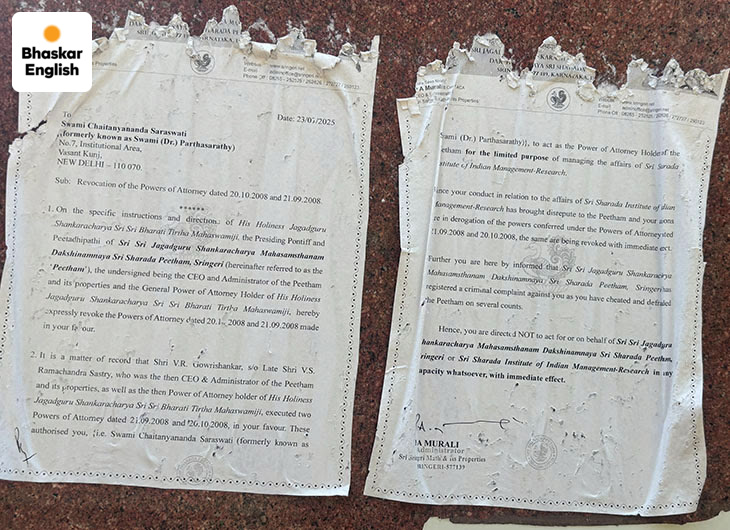 Bhaskar
English
Properties
Website : www.sringeri.net
E-mail : adminoffice@sringeri.net
Date: 23/07/2025
To
Swami Chaitanyananda Saraswati
(formerly known as Swami (Dr.) Parthasarathy)
No.7, Institutional Area,
Vasant Kunj,
NEW DELHI – 110 070.
Sub: Revocation of the Powers of Attorney dated 20.10.2008 and 21.09.2008.
******
1. On the specific instructions and directions of His Holiness Jagadguru
Shankaracharya Sri Sri Bharati Tirtha Mahaswamiji, the Presiding Pontiff and
Peetadhipathi of Sri Sri Jagadguru Shankaracharya Mahasamsthanam
Dakshinamnaya Sri Sharada Peetham, Sringeri (hereinafter referred to as the
'Peetham'), the undersigned being the CEO and Administrator of the Peetham
and its properties and the General Power of Attorney Holder of His Holiness
Jagadguru Shankaracharya Sri Sri Bharati Tirtha Mahaswamiji, hereby
expressly revoke the Powers of Attorney dated 2008 and 21.09.2008 made
in your favour.
2. It is a matter of record that Shri V.R. Gowrishankar, s/o Late Shri V.S.
Ramachandra Sastry, who was the then CEO & Administrator of the Peetham
and its properties, as well as the then Power of Attorney holder of His Holiness
Jagadguru Shankaracharya Sri Sri Bharati Tirtha Mahaswamiji, executed two
Powers of Attorney dated 21.09.2008 and 20.10.2008, in your favour. These
authorised you, {i.e. Swami Chaitanyananda Saraswati (formerly known as
A MURALI
Properties
www.sringeri.net
(Dr.) Parthasarathy)}, to act as the Power of Attorney Holder of the
for the limited purpose of managing the affairs of Sri Sarada
of Indian Management-Research.
your conduct in relation to the affairs of Sri Sharada Institute of
Management-Research has brought disrepute to the Peetham and your
in derogation of the powers conferred under the Powers of Attorney
21.09.2008 and 20.10.2008, the same are being revoked with immediate
Further you are here by informed that Sri Sri Jagadguru
Mahasamsthanam Dakshinamnaya Sri Sharada Peetham,
registered a criminal complaint against you as you have cheated and
the Peetham on several counts.
Hence, you are directed NOT to act for or on behalf of Sri Sri
Mahasamsthanam Dakshinamnaya Sri Sharada
or Sri Sharada Institute of Indian Management-Research in
capacity whatsoever, with immediate effect.
MURALI
Administrator
Math & its Properties
577139